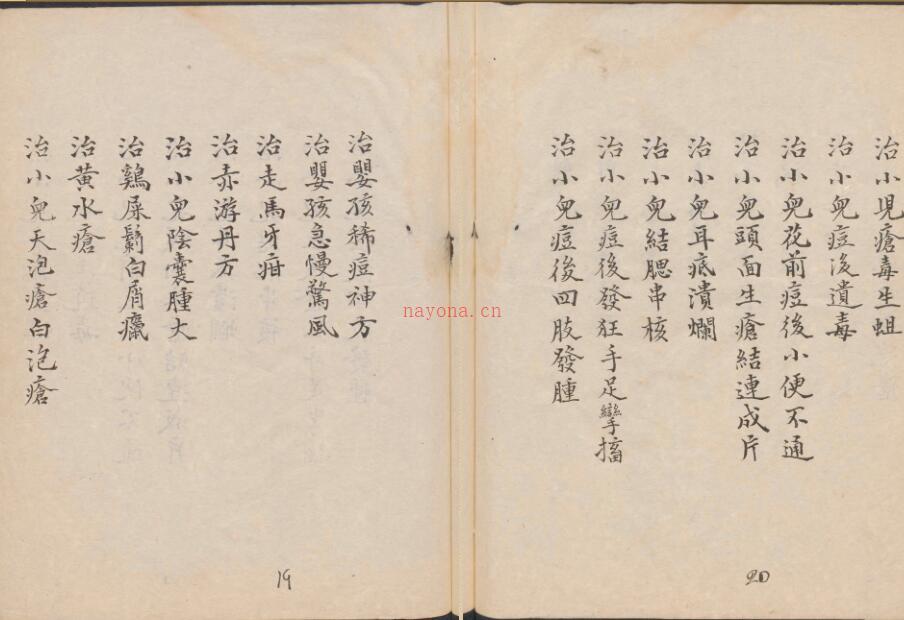 治小児瘡毒生蛆
治小兒痘後遺毒
治小兒花前痘後小便不通
治小兒頭面生瘡結連成片
治小兒耳底潰爛
治小兒結腮串核
治小兒痘後發狂手足攣搐
治小兒痘後四肢發腫
20
治嬰孩稀痘神方
治嬰孩急慢驚風
治走馬牙疳
治赤游丹方
治小兒陰囊腫大
治鷄屎鬎白屑癘
治黃水瘡
治小兒天泡瘡白泡瘡
19
nayona.cn